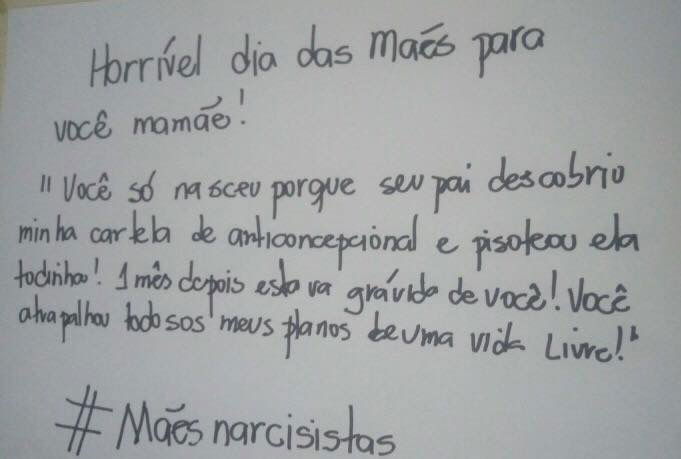 Horrível dia das maẽs para
você mamãe!
"Você só nasceu porque seu pai descobrio
minha cartela de anticoncepcional e pisoteou ela
todinha! 1 mês depois estava grávida de você! Você
atrapalhou todos os meus planos de uma vida Livre!"
#Mães narcisistas